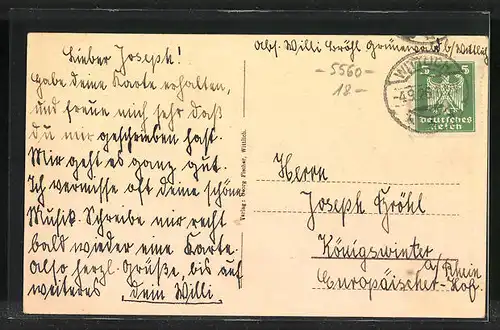 Abs. Willi Gröhl Grünewald b/Wittlich
Lieber Joseph!
habe deine Karte erhalten,
und freue mich sehr daß
du mir geschrieben hast.
Mir geht es ganz gut.
Ich vermisse oft deine schöne
Musik. Schreibe mir recht
bald wieder eine Karte.
also herzl. Grüße, bis auf
weiteres dein Willi
Verlag: Georg Fischer, Wittlich.
- 5560 -
18 -
5
Deutsches
Reich
Herrn
Joseph Gröhl
Königswinter
a/Rhein
Europäischer-Hof.